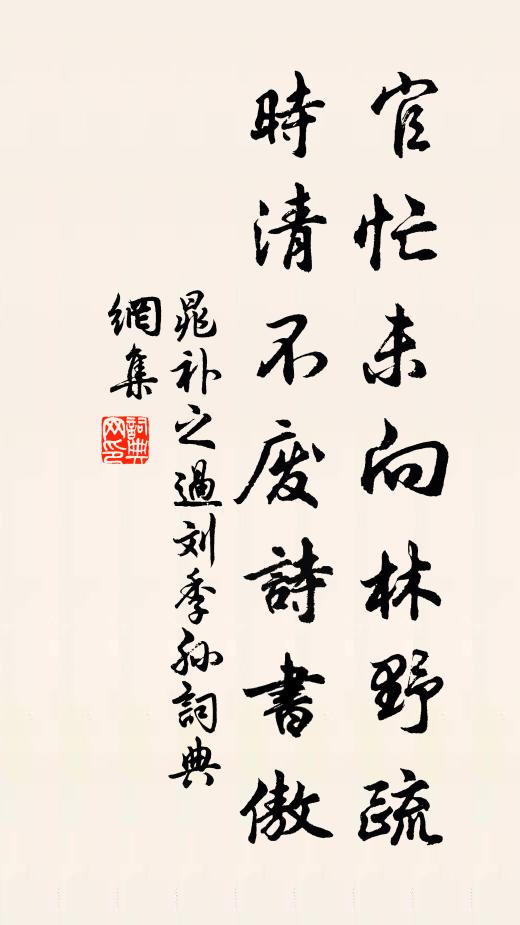 官忙未向林野疏
時清不废詩書傲
晁补之過刘季孙詞典
網集
詞典
网印